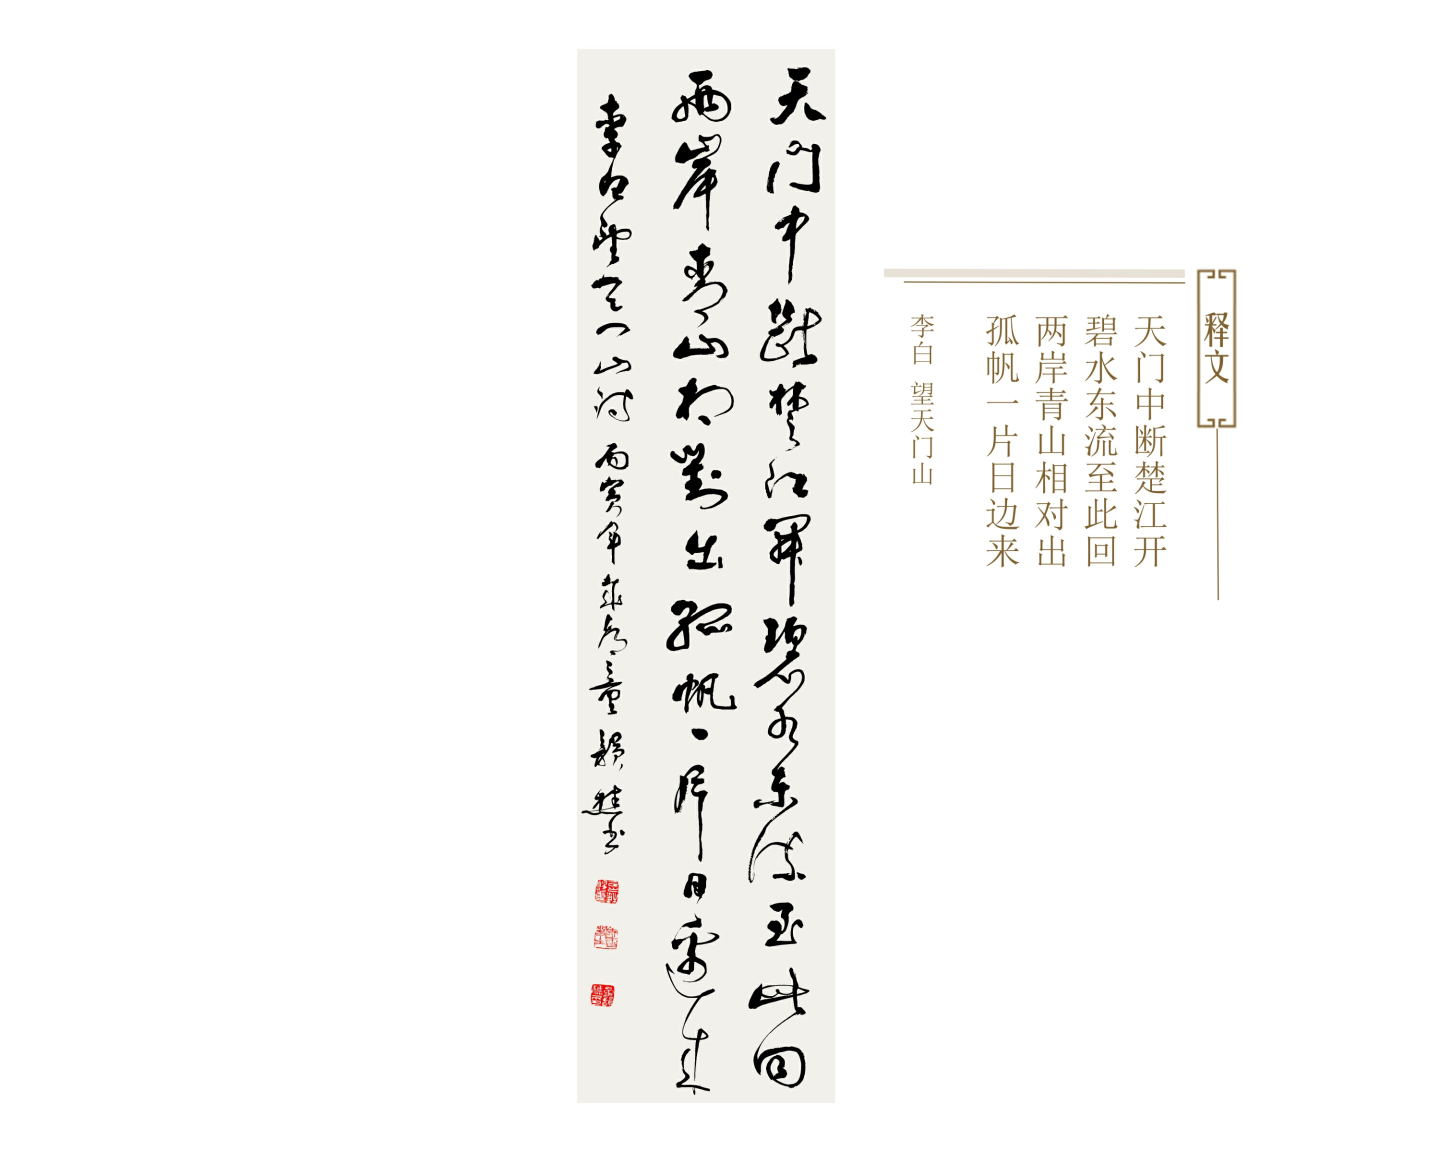 释文
天门中断楚江开
碧水东流至此回
两岸青山相对出
孤帆一片日边来
李白 望天门山
天門中斷楚江開碧水東流至此回
兩岸青山相對出孤帆一片日邊來
李白望天门山诗 丙寅年